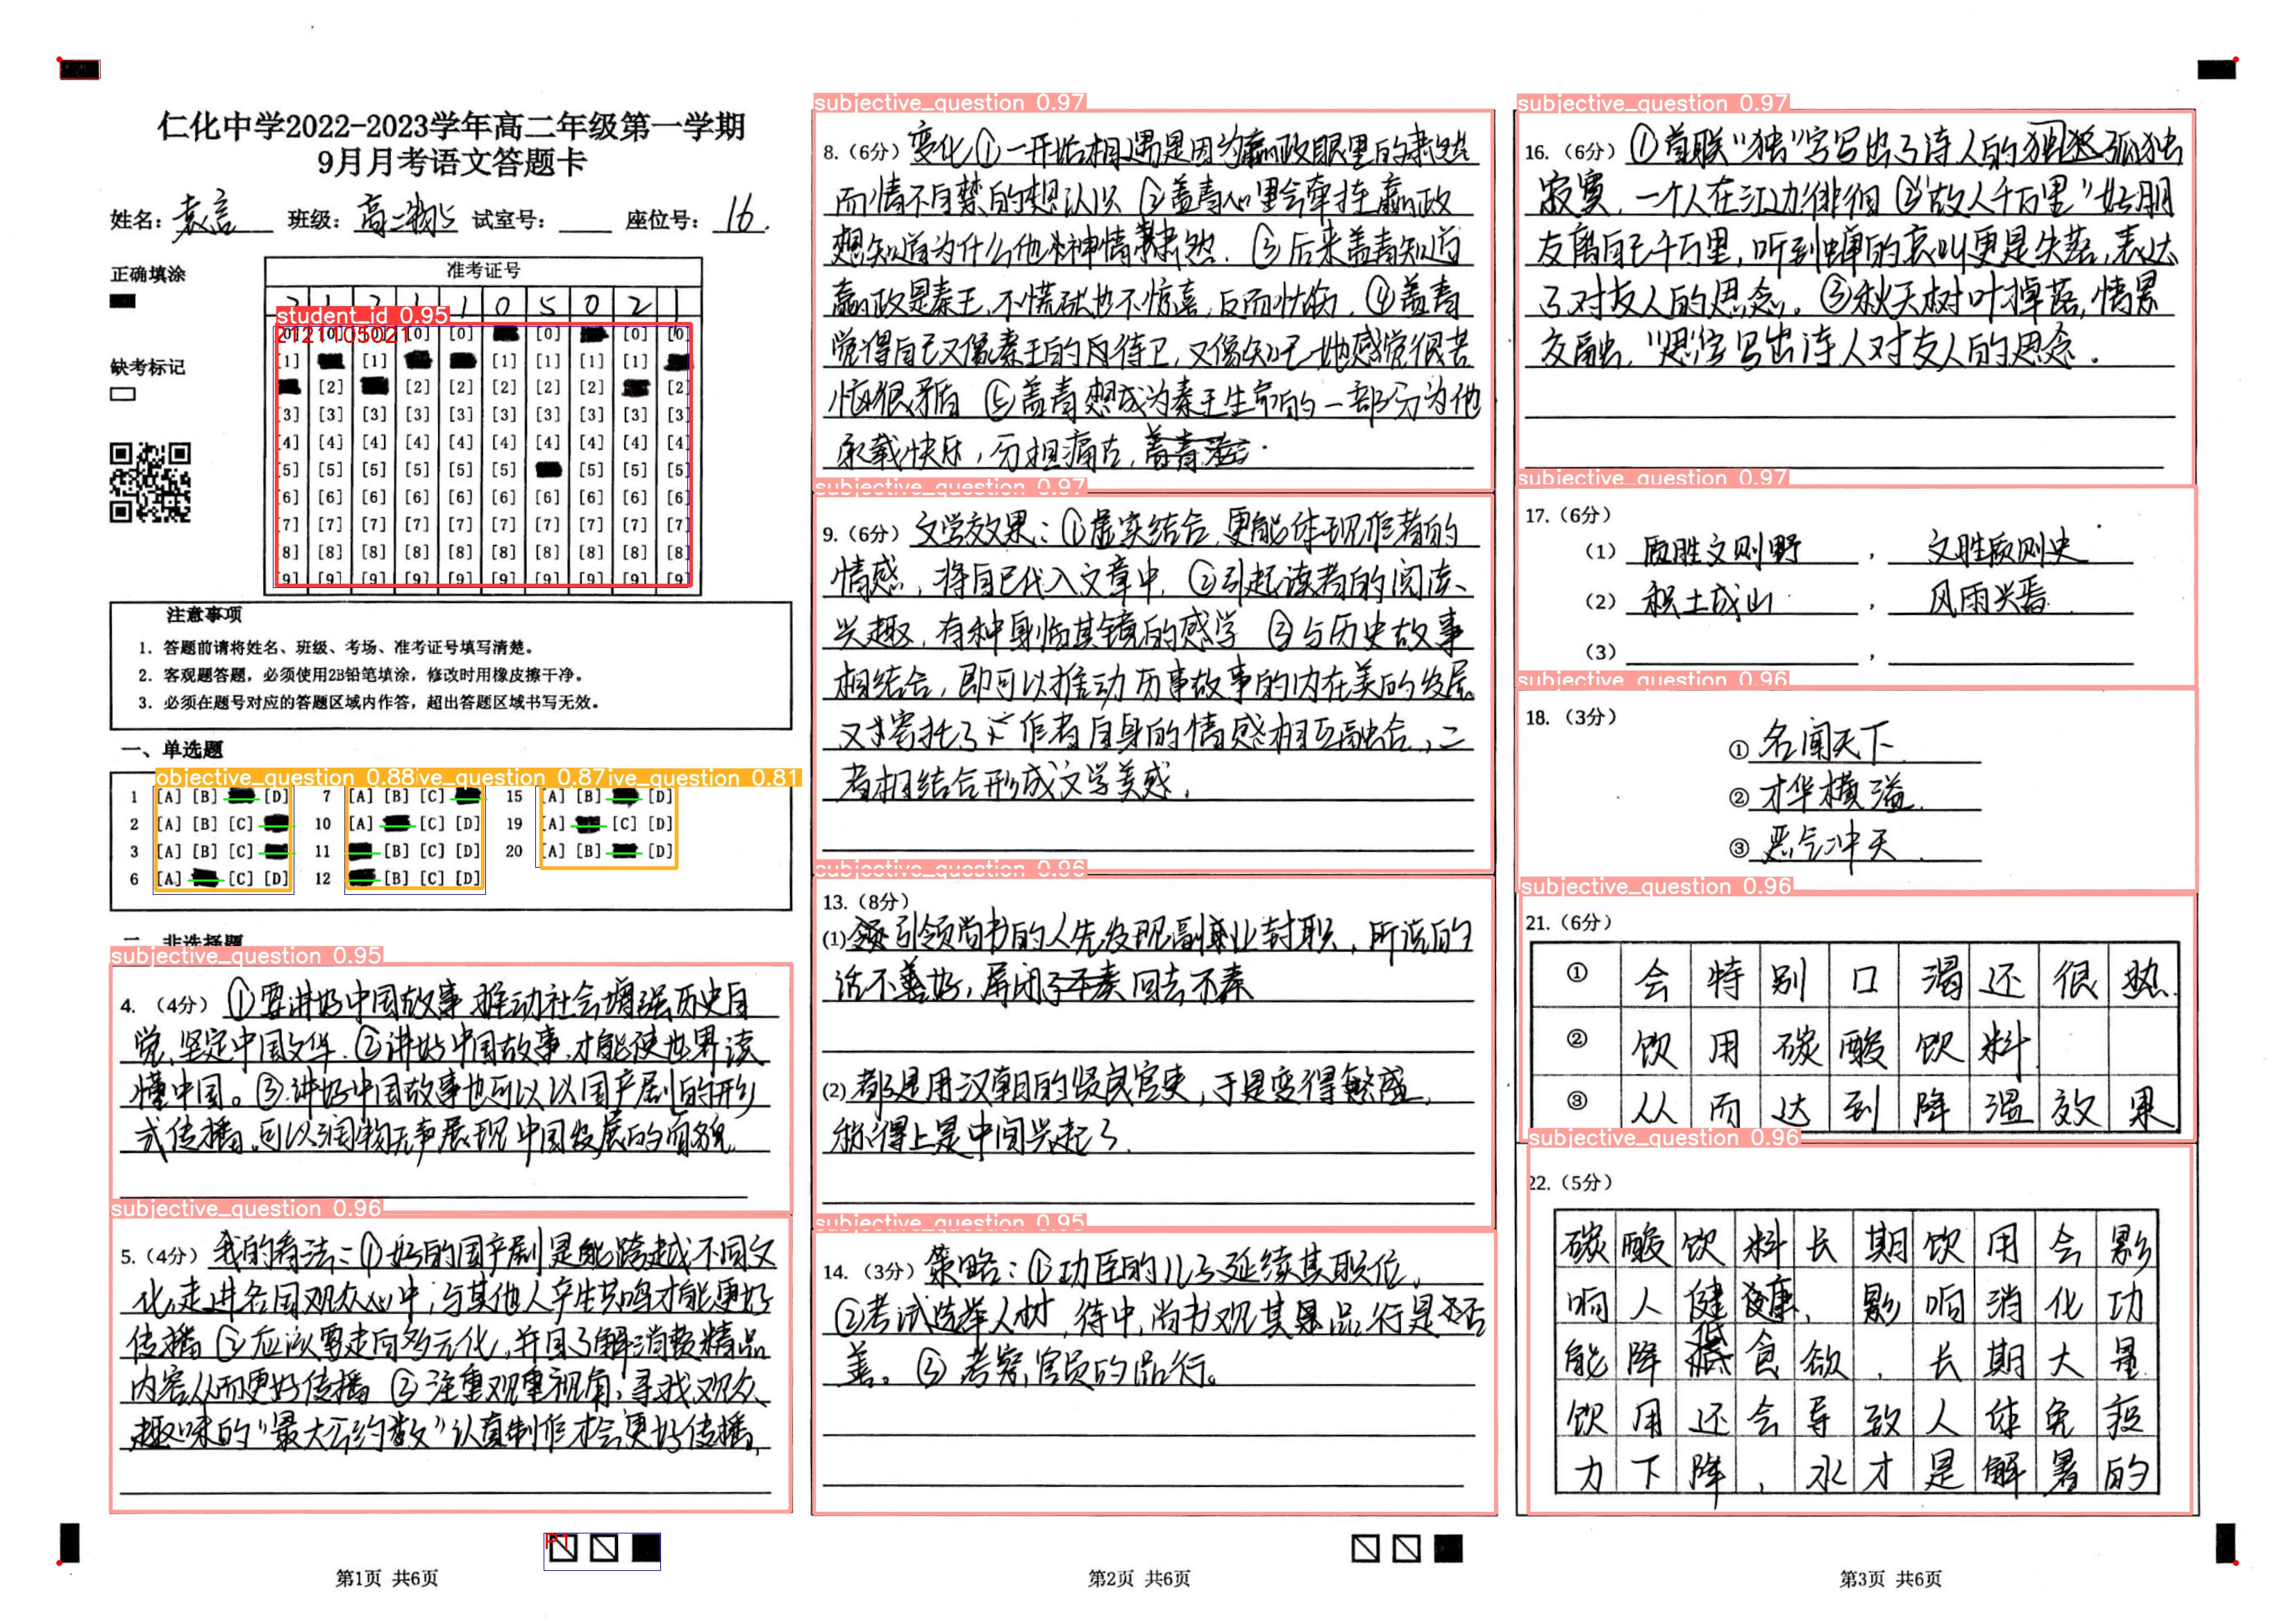 仁化中学2022-2023学年高二年级第一学期
9月月考语文答题卡
姓名：袁言 班级：高二物5 试室号： 座位号：16.
正确填涂
缺考标记
准考证号
2 1 2 1 1 0 5 0 2 1
student_id 0.95
2121105021
[0] [0] [0] [0] [0] [0] [0]
[1] [1] [1] [1] [1] [1]
[2] [2] [2] [2] [2] [2] [2]
[3] [3] [3] [3] [3] [3] [3] [3] [3] [3]
[4] [4] [4] [4] [4] [4] [4] [4] [4] [4]
[5] [5] [5] [5] [5] [5] [5] [5] [5]
[6] [6] [6] [6] [6] [6] [6] [6] [6] [6]
[7] [7] [7] [7] [7] [7] [7] [7] [7] [7]
[8] [8] [8] [8] [8] [8] [8] [8] [8] [8]
[9] [9] [9] [9] [9] [9] [9] [9] [9] [9]
注意事项
1. 答题前请将姓名、班级、考场、准考证号填写清楚。
2. 客观题答题，必须使用2B铅笔填涂，修改时用橡皮擦干净。
3. 必须在题号对应的答题区域内作答，超出答题区域书写无效。
一、单选题
objective_question 0.88 ive_question 0.87 ive_question 0.81
1 [A] [B] [D] 7 [A] [B] [C] 15 [A] [B] [D]
2 [A] [B] [C] 10 [A] [C] [D] 19 [A] [C] [D]
3 [A] [B] [C] 11 [B] [C] [D] 20 [A] [B] [D]
6 [A] [C] [D] 12 [B] [C] [D]
二、非选择题
subjective_question 0.95
4. （4分）①要讲好中国故事 推动社会增强历史自
觉，坚定中国文华.②讲好中国故事，才能使世界读
懂中国。③讲好中国故事也可以以国产剧的形
式传播，可以润物无声展现中国发展的面貌
subjective_question 0.96
5.（4分）我的看法：①好的国产剧是能跨越不同文
化，走进各国观众心中，与其他人产生共鸣才能更好
传播 ②应该要走向多元化，并国了解消费精品
内容从而更好传播 ③注重观重视角，寻找观众
趣味的“最大公约数”认真制作才会更好传播，
P1
第1页 共6页
subjective_question 0.97
8.（6分）变化①一开始相遇是因为嬴政眼里的肃然
而情不自禁的想认识 ②盖青心里会牵挂嬴政
想知道为什么他精神情肃然. ③后来盖青知道
嬴政是秦王，不慌张也不惊喜，反而忧伤，④盖青
觉得自己又像秦王的侍卫，又像知己，她感觉很苦
恼很矛盾 ⑤盖青想成为秦王生命的一部分为他
承载快乐，分担痛苦，
subjective_question 0.97
9.（6分）文学效果：①虚实结合，更能体现作者的
情感，将自己代入文章中，②引起读者的阅读
兴趣，有种身临其镜的感学 ③与历史故事
相结合，即可以推动历事故事的内在美的发展
又寄托了作者自身的情感相互融合，二
者相结合形成文学美感，
subjective_question 0.96
13.（8分）
(1) 引领尚书的人先发现副业封职，所说的
话不善好，屏闭 回去不奏
(2) 都是用汉朝的贤良官吏，于是变得繁盛，
称得上是中间兴起了.
subjective_question 0.95
14.（3分）策略：①功臣的儿子延续其职位，
②考试选举人材，待中，尚书观其品行是否
善。③考察官员的品行。
第2页 共6页
subjective_question 0.97
16.（6分）①首联“独”字写出了诗人的孤独
寂寞，一个人在江边徘徊 ②“故人千万里”好朋
友离自己千万里，听到蝉的哀叫更是失落，表达
了对友人的思念。③秋天树叶掉落，情景
交融，“思”字写出诗人对友人的思念.
subjective_question 0.97
17.（6分）
（1）质胜文则野，文胜质则史
（2）积土成山，风雨兴焉.
（3） ，
subjective_question 0.96
18.（3分）
①名闻天下
②才华横溢.
③恶气冲天.
subjective_question 0.96
21.（6分）
① 会特别口渴还很热.
② 饮用碳酸饮料
③ 从而达到降温效果
subjective_question 0.96
22.（5分）
碳酸饮料长期饮用会影
响人健康，影响消化功
能降低食欲，长期大量
饮用还会导致人体免疫
力下降，水才是解暑的
第3页 共6页